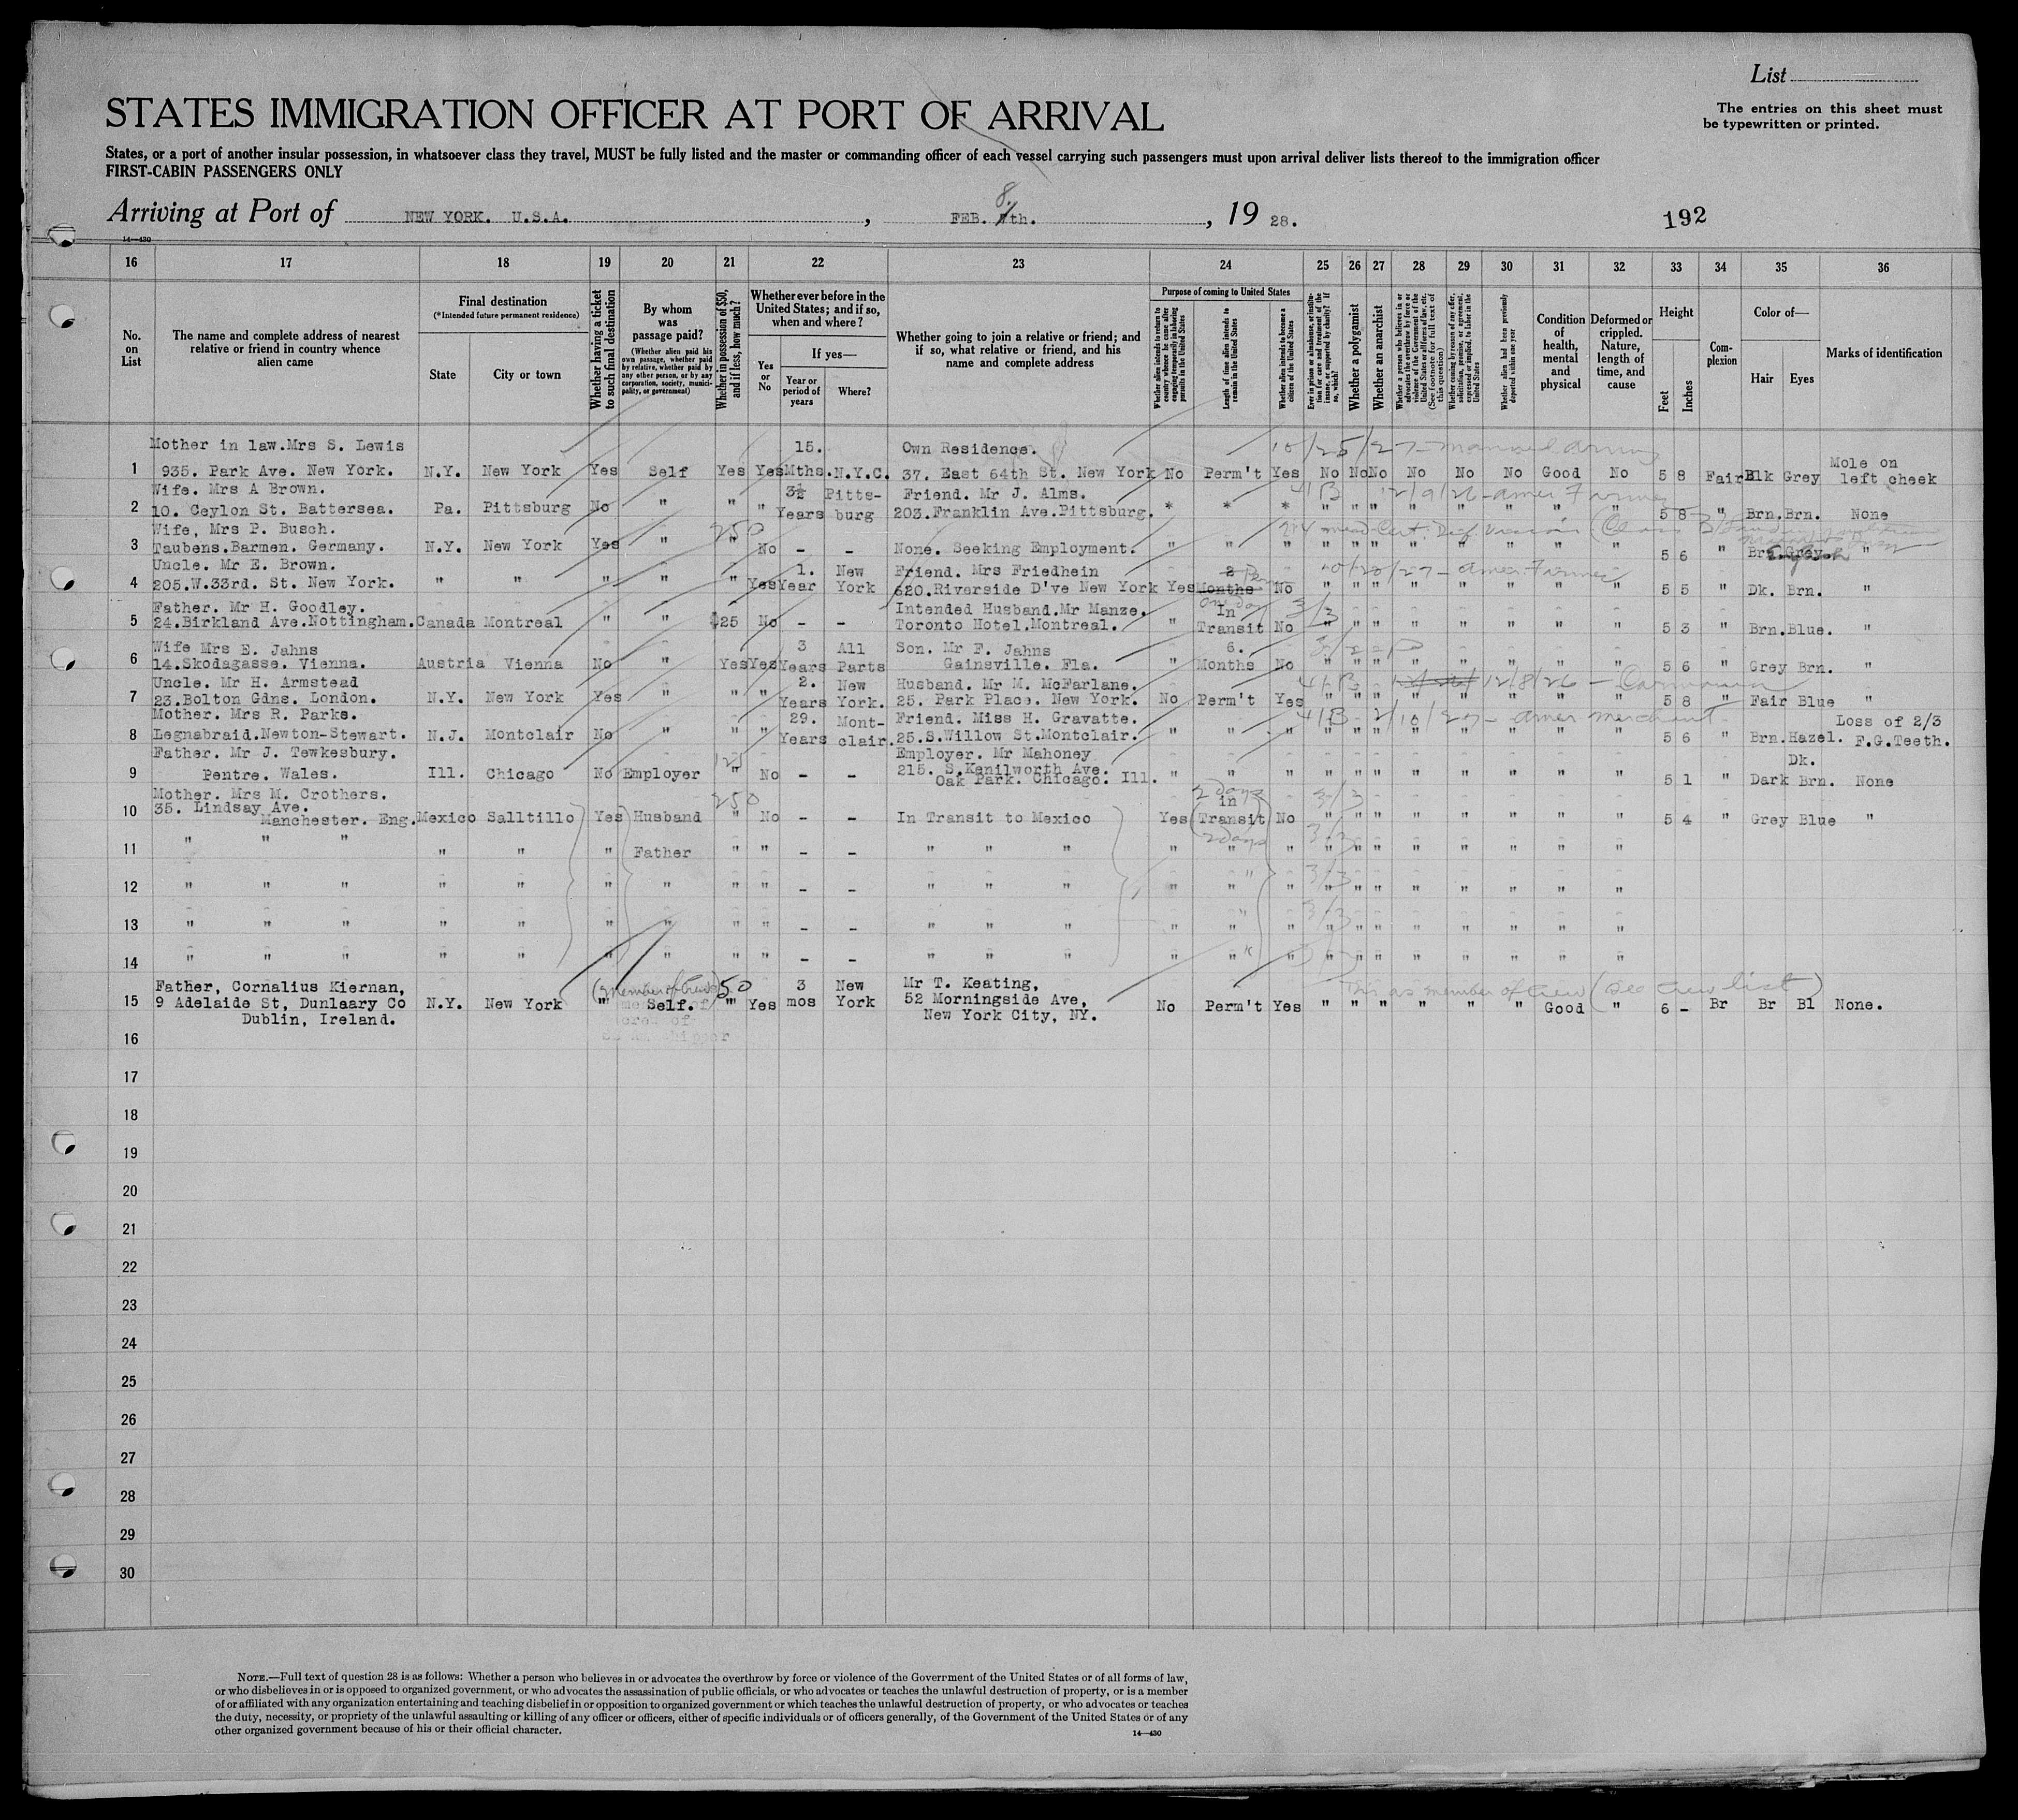 List
The entries on this sheet must
be typewritten or printed.
STATES IMMIGRATION OFFICER AT PORT OF ARRIVAL
States, or a port of another insular possession, in whatsoever class they travel, MUST be fully listed and the master or commanding officer of each vessel carrying such passengers must upon arrival deliver lists thereof to the immigration officer
FIRST-CABIN PASSENGERS ONLY
Arriving at Port of NEW YORK. U.S.A. , FEB. 8/th. , 19 28. 192
14—430
16 17 18 19 20 21 22 23 24 25 26 27 28 29 30 31 32 33 34 35 36
No. on List
The name and complete address of nearest relative or friend in country whence alien came
Final destination
(*Intended future permanent residence)
State
City or town
Whether having a ticket to such final destination
By whom was passage paid?
(Whether alien paid his own passage, whether paid by relative, whether paid by any other person, or by any corporation, society, municipality, or government)
Whether in possession of $50, and if less, how much?
Whether ever before in the United States; and if so, when and where?
Yes or No
If yes—
Year or period of years
Where?
Whether going to join a relative or friend; and if so, what relative or friend, and his name and complete address
Purpose of coming to United States
Whether alien intends to return to country whence he came after engaging temporarily in laboring pursuits in the United States
Length of time alien intends to remain in the United States
Whether alien intends to become a citizen of the United States
Ever in prison or almshouse, or institution for care and treatment of the insane, or supported by charity? If so, which?
Whether a polygamist
Whether an anarchist
Whether a person who believes in or advocates the overthrow by force or violence of the Government of the United States or all forms of law, etc. (See footnote for full text of this question)
Whether coming by reason of any offer, solicitation, promise, or agreement, expressed or implied, to labor in the United States
Whether alien had been previously deported within one year
Condition of health, mental and physical
Deformed or crippled. Nature, length of time, and cause
Height
Feet
Inches
Complexion
Color of—
Hair
Eyes
Marks of identification
Mother in law.Mrs S. Lewis 15. Own Residence. 10/25/27
1 935. Park Ave. New York. N.Y. New York Yes Self Yes Yes Mths. N.Y.C. 37. East 64th St. New York No Perm't Yes No No No No No No Good No 5 8 Fair Blk Grey Mole on left cheek
Wife. Mrs A Brown. 3½ Pitts- Friend. Mr J. Alms. 4/B 12/9/26
2 10. Ceylon St. Battersea. Pa. Pittsburg No " " " Years burg 203.Franklin Ave.Pittsburg. * * * " " " " " " " " 5 8 " Brn. Brn. None
Wife, Mrs P. Busch. 250
3 Taubens.Barmen. Germany. N.Y. New York Yes " " No - - None. Seeking Employment. " " " " " " " " " " " 5 6 " Br. Grey "
Uncle. Mr E. Brown. 1. New Friend. Mrs Friedhein 2 10/20/27
4 205.W.33rd. St. New York. " " " " " Yes Year York 620.Riverside D've New York Yes Months No " " " " " " " " 5 5 " Dk. Brn. "
Father. Mr H. Goodley. Intended Husband.Mr Manze. One day In 3/3
5 24.Birkland Ave.Nottingham. Canada Montreal " " $25 No - - Toronto Hotel.Montreal. " Transit No " " " " " " " " 5 3 " Brn. Blue. "
Wife Mrs E. Jahns 3 All Son. Mr F. Jahns 6.
6 14.Skodagasse. Vienna. Austria Vienna No " Yes Yes Years Parts Gainsville. Fla. " Months No " " " " " " " " 5 6 " Grey Brn. "
Uncle. Mr H. Armstead 2. New Husband. Mr M. McFarlane. 4/B 12/8/26
7 23.Bolton Gdns. London. N.Y. New York Yes " " " Years York. 25. Park Place. New York. No Perm't Yes " " " " " " " " 5 8 " Fair Blue "
Mother. Mrs R. Parks. 29. Mont- Friend. Miss H. Gravatte. 4/B - 2/10/27 - Amer Merchant Loss of 2/3
8 Legnabraid.Newton-Stewart. N.J. Montclair No " " " Years clair. 25.S.Willow St.Montclair. " " " " " " " " " " " 5 6 " Brn. Hazel. F.G.Teeth.
Father. Mr J. Tewkesbury. Employer. Mr Mahoney Dk.
9 Pentre. Wales. Ill. Chicago No Employer " No - - 215. S.Kenilworth Ave. Oak Park. Chicago. Ill. " " " " " " " " " " " 5 1 " Dark Brn. None
Mother. Mrs M. Crothers. 250 2 days in 3/3
10 35. Lindsay Ave. Manchester. Eng. Mexico Salltillo Yes Husband " No - - In Transit to Mexico Yes Transit No " " " " " " " " 5 4 " Grey Blue "
2 days 3/3
11 " " " " " " Father " " - - " " " " " " " " " " " " " "
3/3
12 " " " " " " " " " - - " " " " " " " " " " " " " "
3/3
13 " " " " " " " " " - - " " " " " " " " " " " " " "
14 " " " " " " " " " - - " " " " " " " " " " " " " "
Father, Cornalius Kiernan, (Member of Crew) 50 3 New Mr T. Keating, This as member of crew (See crew list)
15 9 Adelaide St, Dunlaary Co N.Y. New York " Self. " Yes mos York 52 Morningside Ave, No Perm't Yes " " " " " " Good " 6 - Br Br Bl None.
Dublin, Ireland. New York City, NY.
16
17
18
19
20
21
22
23
24
25
26
27
28
29
30
NOTE.—Full text of question 28 is as follows: Whether a person who believes in or advocates the overthrow by force or violence of the Government of the United States or of all forms of law,
or who disbelieves in or is opposed to organized government, or who advocates the assassination of public officials, or who advocates or teaches the unlawful destruction of property, or is a member
of or affiliated with any organization entertaining and teaching disbelief in or opposition to organized government or which teaches the unlawful destruction of property, or who advocates or teaches
the duty, necessity, or propriety of the unlawful assaulting or killing of any officer or officers, either of specific individuals or of officers generally, of the Government of the United States or of any
other organized government because of his or their official character.
14—430